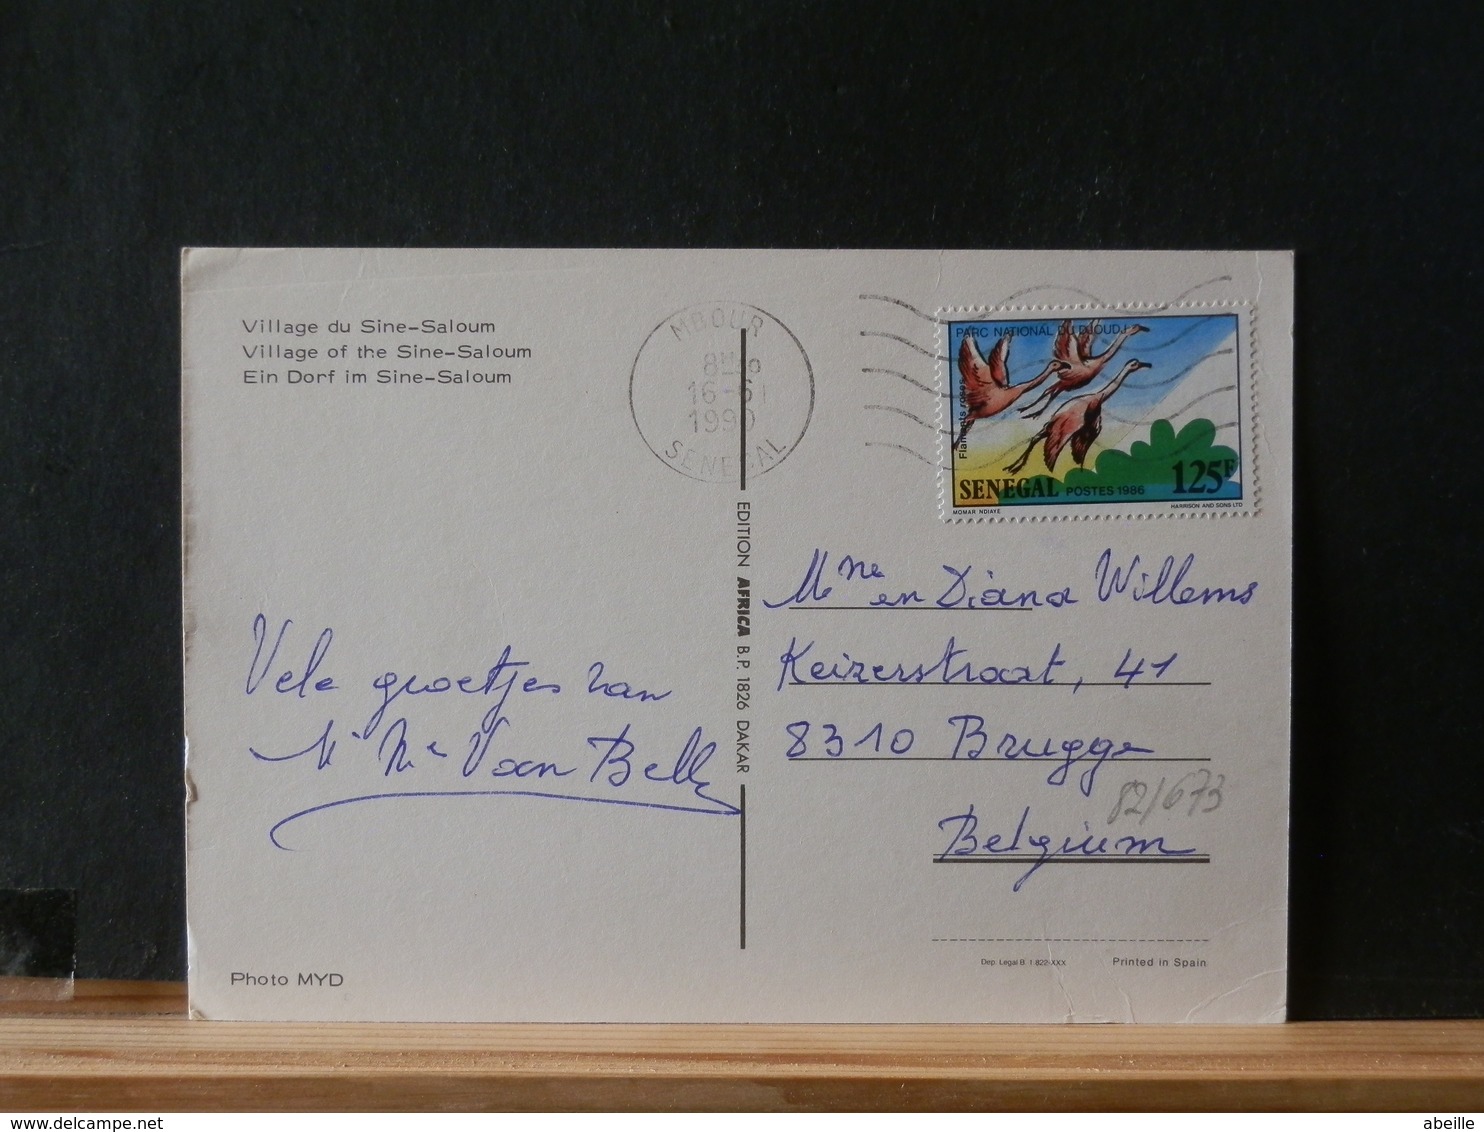 Village du Sine-Saloum
Village of the Sine-Saloum
Ein Dorf im Sine-Saloum
MBOUR
16-6
1990
SENEGAL
PARC NATIONAL DU DJOUDJ
Flamants roses
SENEGAL POSTES 1986 125F
MOMAR NDIAYE HARRISON AND SONS LTD
EDITION AFRICA B.P. 1826 DAKAR
Vele groetjes van
Van Belle
Mme en Diana Willems
Keizerstraat, 41
8310 Brugge
82/673
Belgium
Dep. Legal B. 1-822-XXX Printed in Spain
Photo MYD
abeille